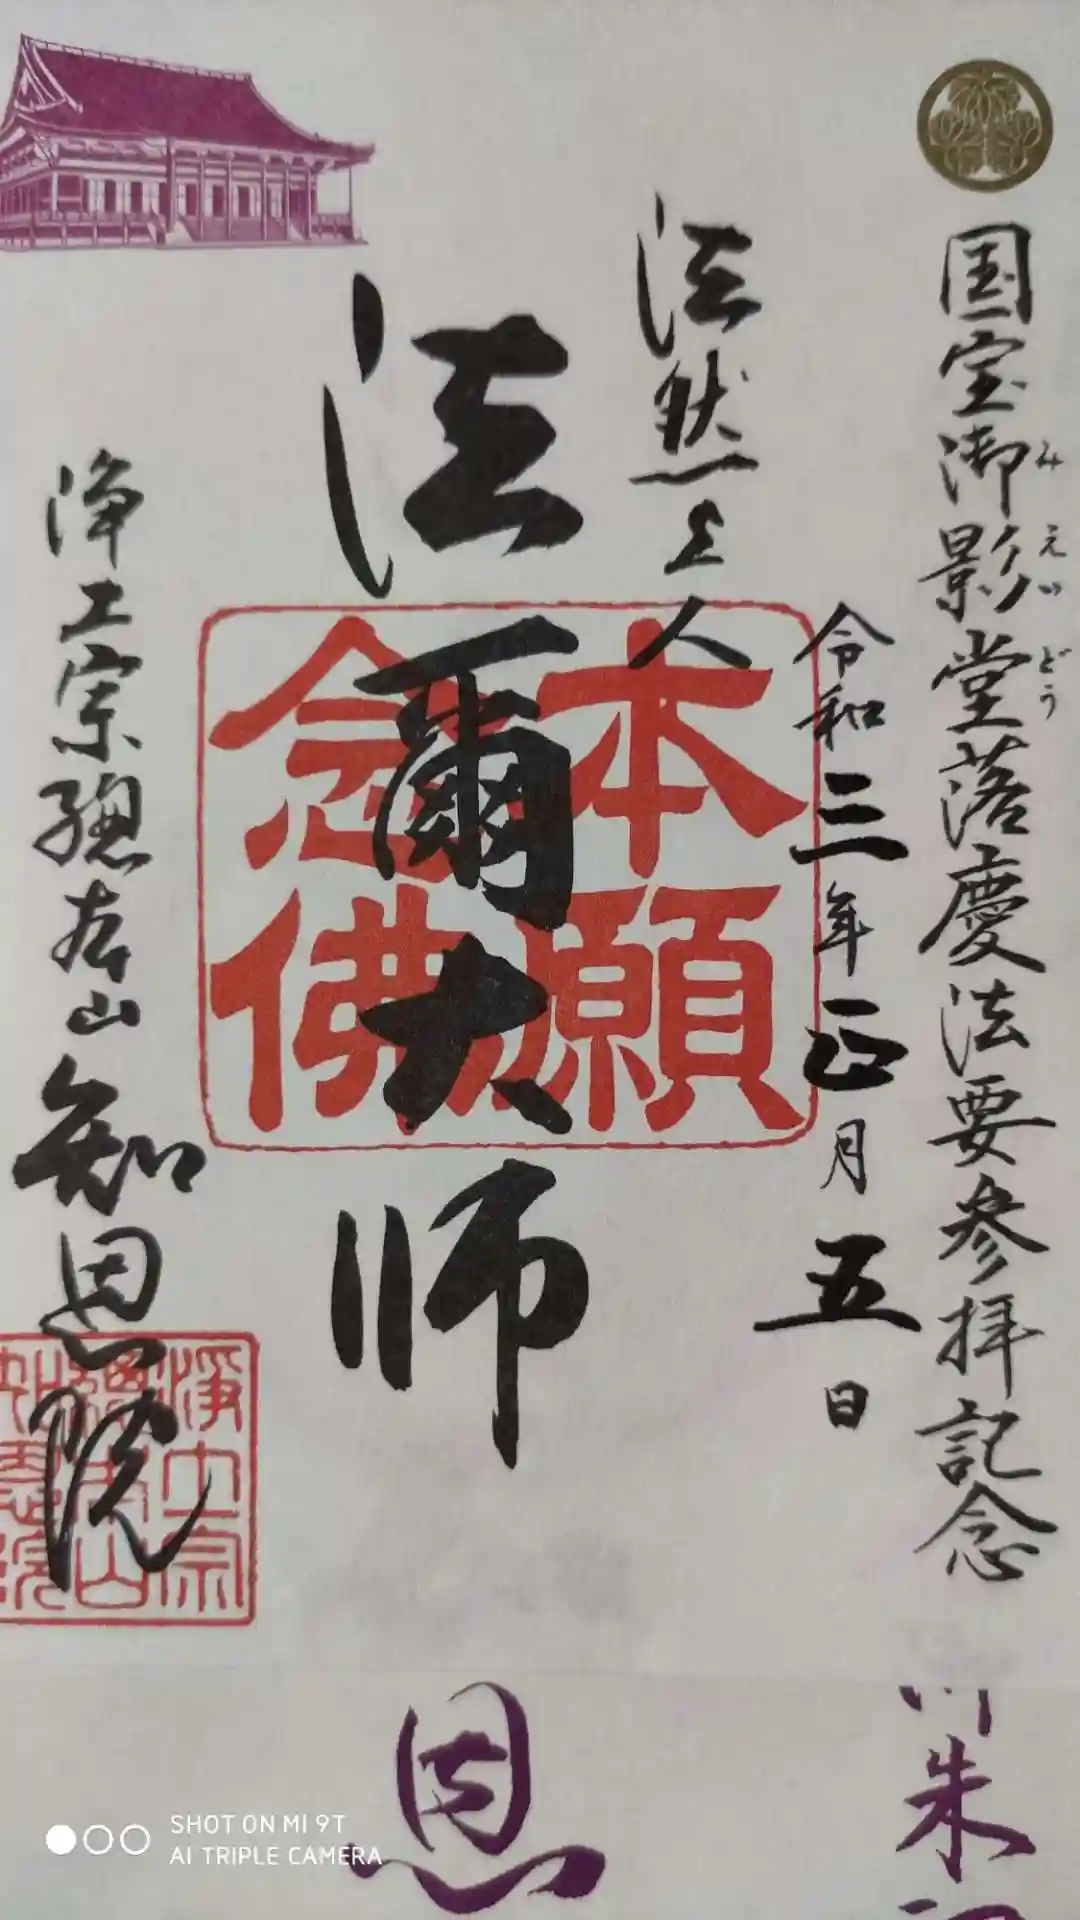 国宝御影堂落慶法要参拝記念
みえいどう
令和三年正月五日
法然上人
本願
念佛
法爾大師
浄土宗總本山知恩院
淨土宗
總本山
知恩院
朱
恩
SHOT ON MI 9T
AI TRIPLE CAMERA